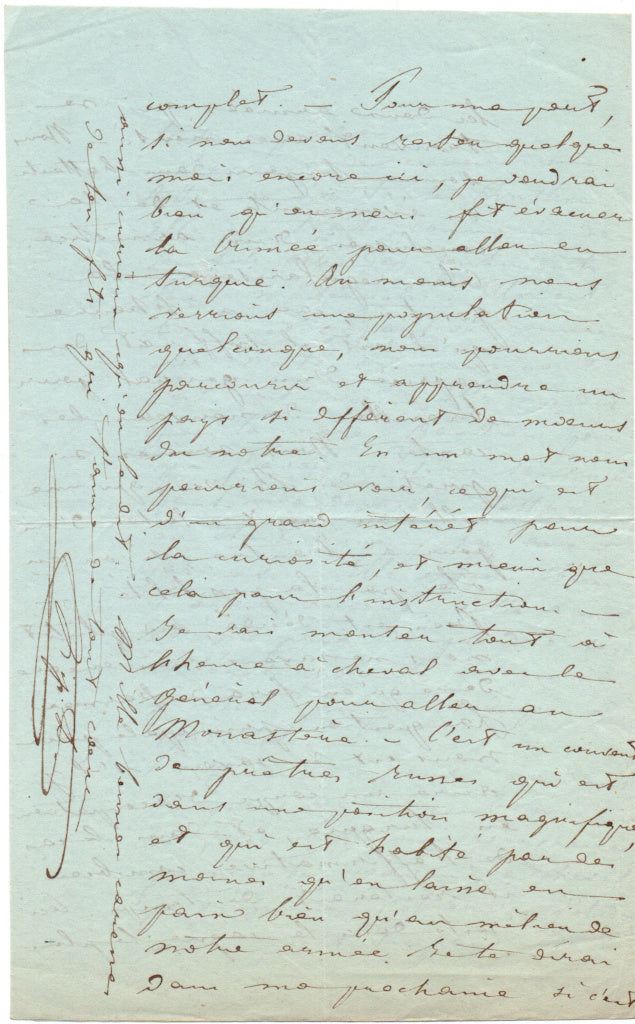 complet. — Pour ma part,
si nous devons rester quelque
mois encore ici, je voudrai
bien qu'on nous fit évacuer
la Crimée pour aller en
turquie. Au moins nous
verrions une population
quelconque, nous pourrions
parcourir et apprendre un
pays si différent de moeurs
du notre. En un mot nous
pourrions voir, ce qui est
d'un grand intérêt pour
la curiosité, et mieux que
cela pour l'instruction. —
Je vais monter tout à
l'heure à cheval avec le
Général pour aller au
Monastère. — C'est un couvent
de prêtres russes qui est
dans une position magnifique,
et qui est habité par des
moines qu'on laisse en
paix bien qu'au milieu de
notre armée. Je te dirai
dans ma prochaine si c'est
aussi curieux qu'on le dit. Mille bonnes caresses
de ton fils qui t'aime de tout coeur